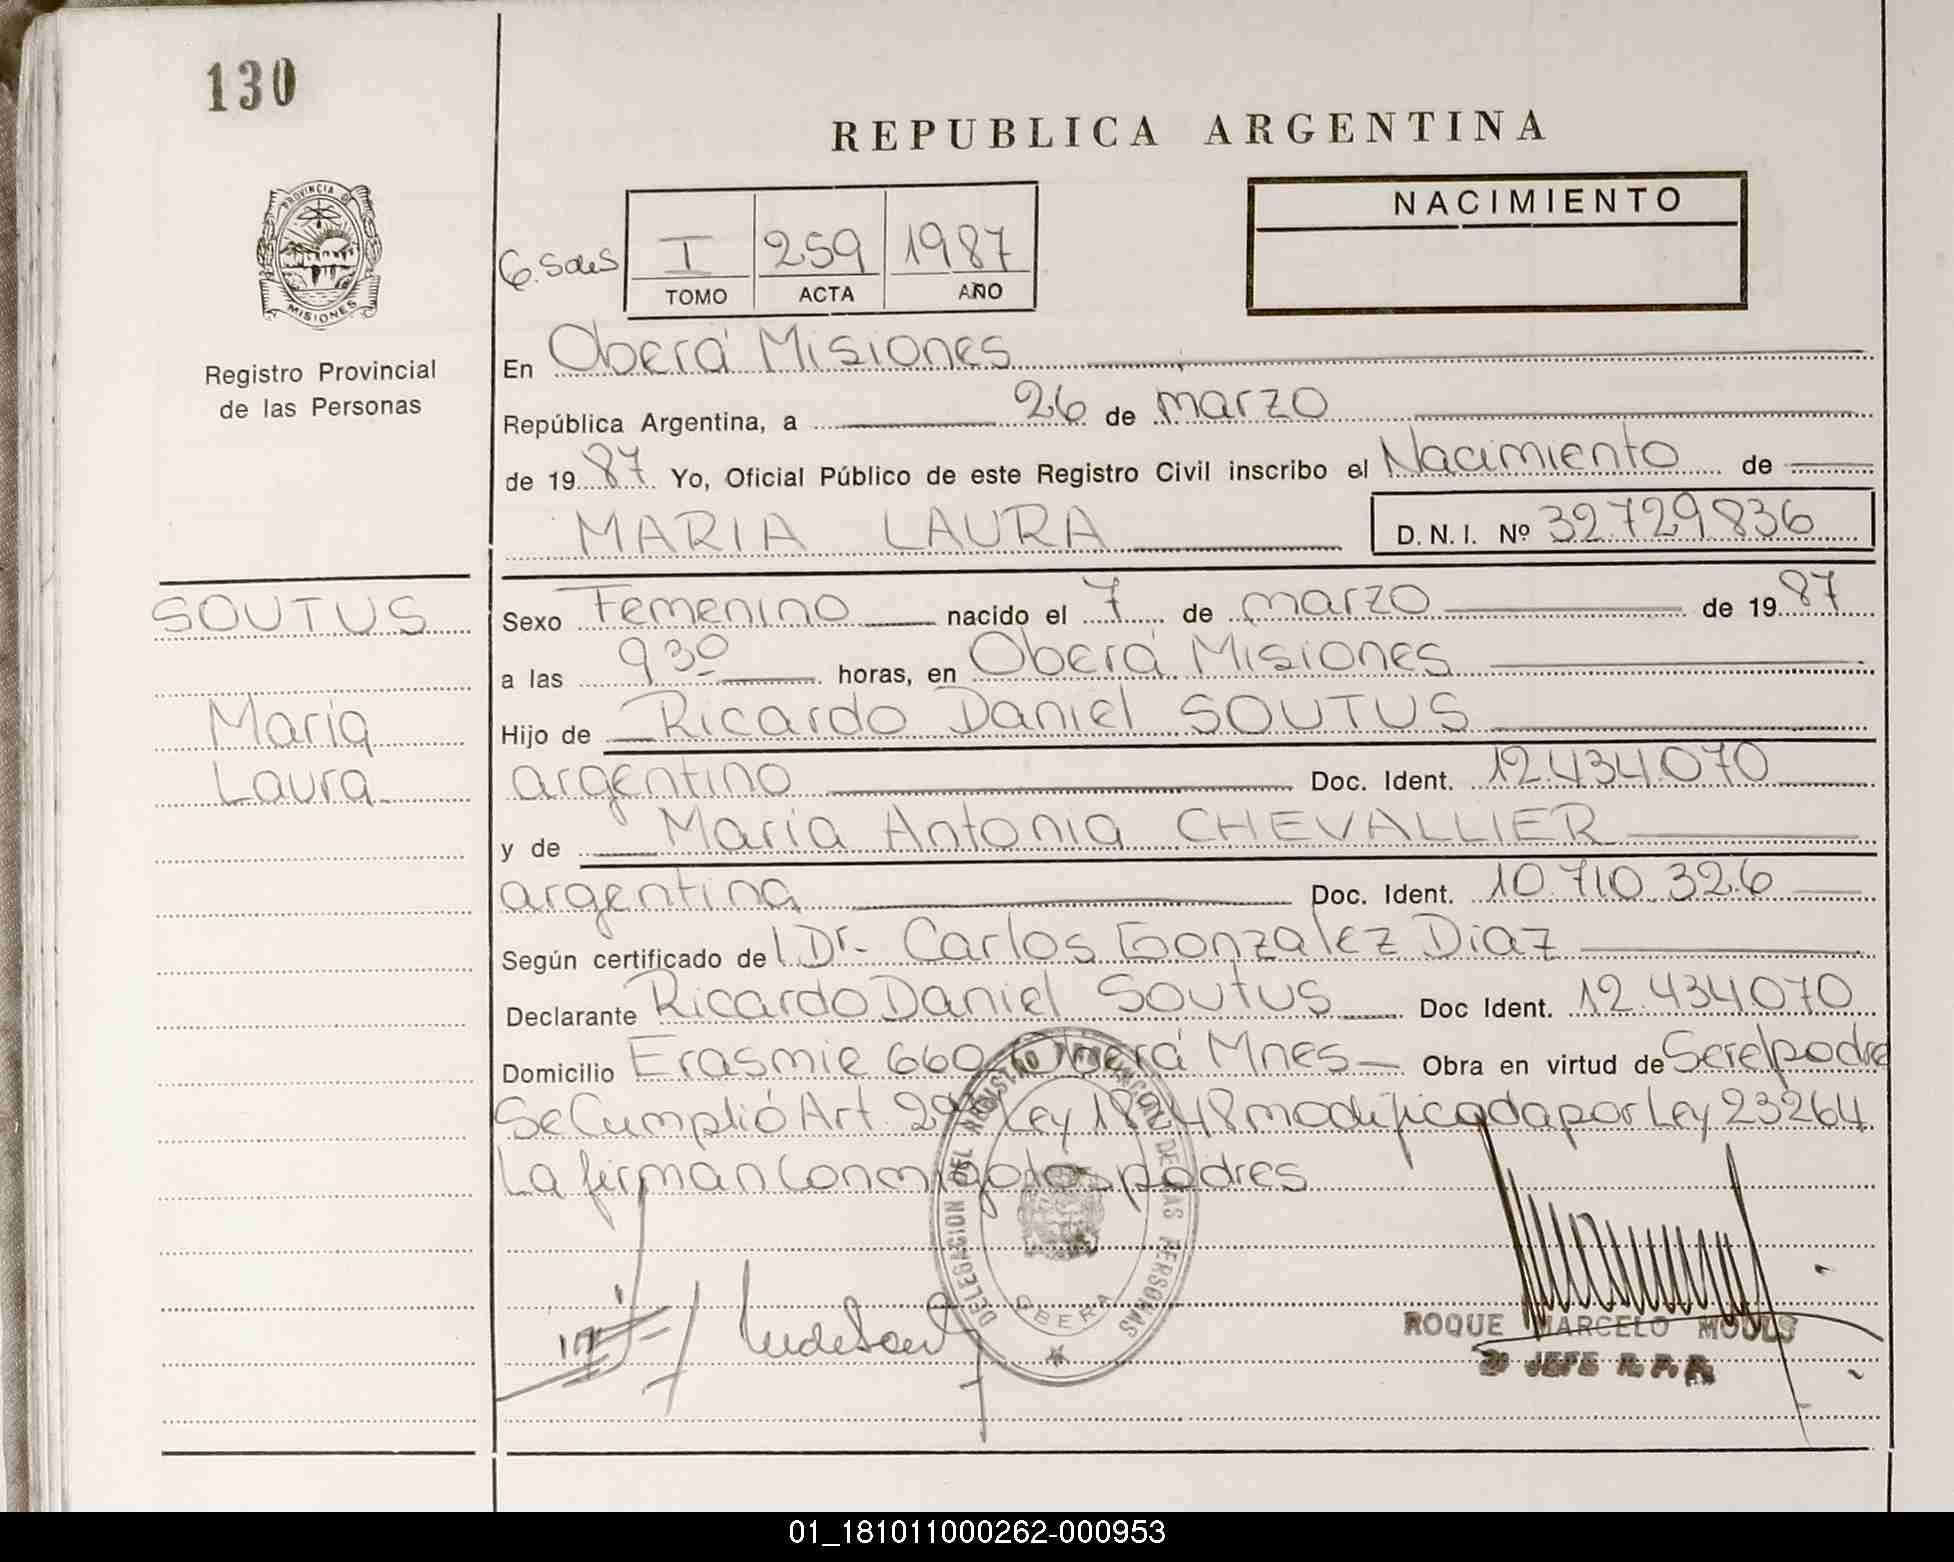 130
REPUBLICA ARGENTINA
PROVINCIA DE
MISIONES
Registro Provincial
de las Personas
I 259 1987
TOMO ACTA AÑO
NACIMIENTO
En Oberá Misiones
República Argentina, a 26 de marzo
de 1987 Yo, Oficial Público de este Registro Civil inscribo el Nacimiento de
MARIA LAURA D.N.I. Nº 32729836
SOUTUS
Maria
Laura
Sexo Femenino nacido el 7 de marzo de 1987
a las 930 horas, en Oberá Misiones
Hijo de Ricardo Daniel SOUTUS
argentino Doc. Ident. 12.434.070
y de Maria Antonia CHEVALLIER
argentina Doc. Ident. 10.710.326
Según certificado de l Dr. Carlos Gonzalez Diaz
Declarante Ricardo Daniel Soutus Doc Ident. 12.434070
Domicilio Erasmie 660 Oberá Mnes Obra en virtud de Ser el padre
Se Cumplió Art. 29 Ley 18248 modificada por Ley 23264.
La firman conmigo los padres
DELEGACION DEL REGISTRO PROVINCIAL DE LAS PERSONAS
OBERA
ROQUE MARCELO
JEFE R.P.P.
01_181011000262-000953